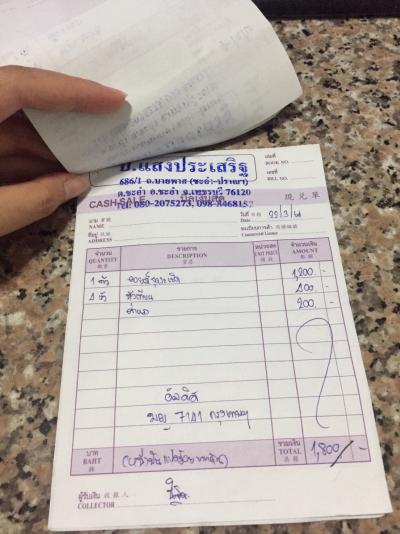 อ.แสงประเสริฐ
686/1 ถ.บายพาส (ชะอำ-ปราณฯ)
ต.ชะอำ อ.ชะอำ จ.เพชรบุรี 76120
โทร. 080-2075273, 098-8468158
เล่มที่
BOOK NO.
เลขที่
BILL NO.
CASH SALE บิลเงินสด 現兌單
นาม
NAME
วันที่ 22/3/61
ที่อยู่
ADDRESS
ทะเบียนการค้า
Commercial License
จำนวน รายการ หน่วยละ จำนวนเงิน
QUANTITY DESCRIPTION UNIT PRICE AMOUNT
1 ตัว 1,200.-
4 หัวเทียน 400.-
ค่าแรง 200.-
7141 กรุงเทพฯ
บาท รวมเงิน
BAHT TOTAL 1,800.-
(หนึ่งพันแปดร้อยบาทถ้วน)
ผู้รับเงิน
COLLECTOR